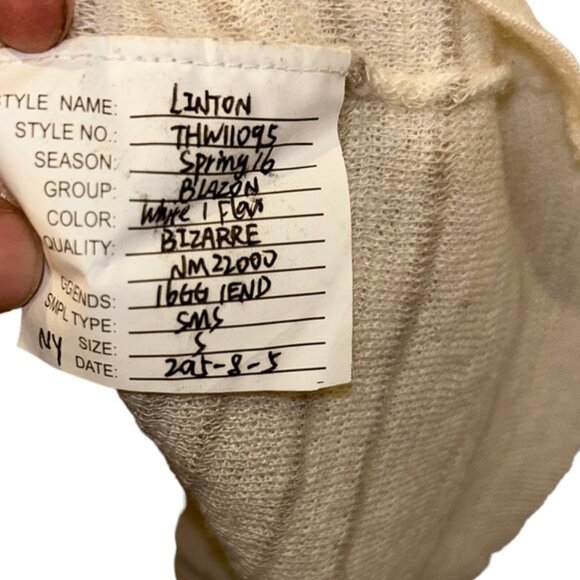 STYLE NAME: LINTON
STYLE NO.: THW11095
SEASON: Spring 16
GROUP: BLAZON
COLOR: White 1 Flax
QUALITY: BIZARRE
NM22000
GG/ENDS: 16GG 1END
SMPL TYPE: SMS
NY SIZE: S
DATE: 2015-8-5